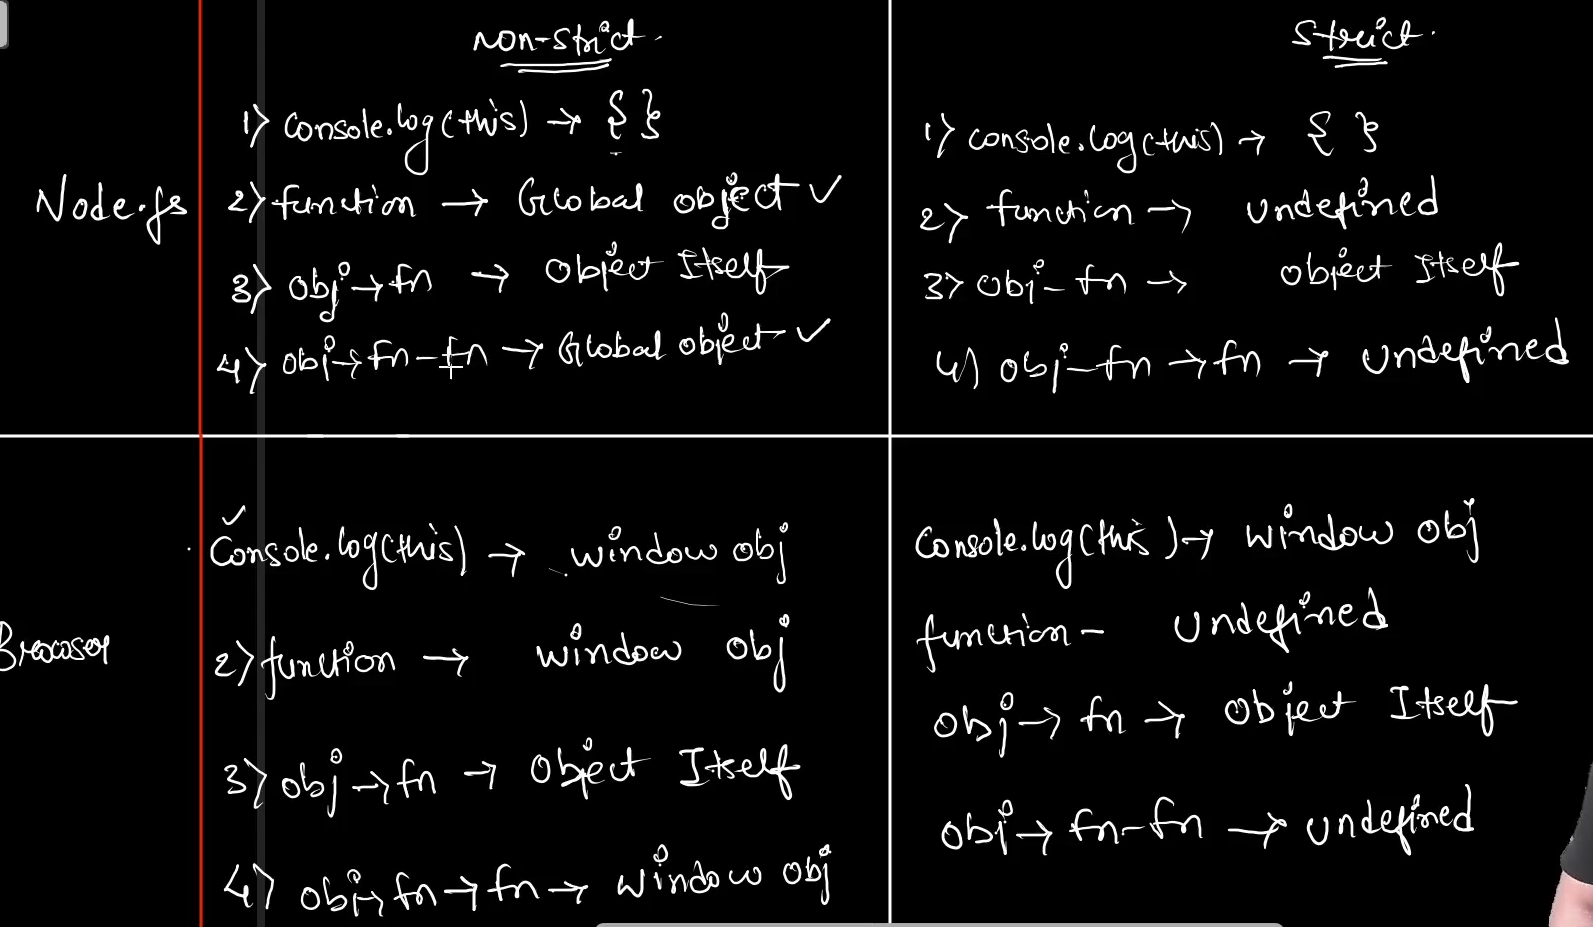 Non-strict.
Strict.
Node.js
1) Console.log(this) → { }
2) function → Global object ✓
3) obj → fn → object Itself
4) obj → fn - fn → Global object ✓
1) console.log(this) → { }
2) function → undefined
3) obj - fn → object Itself
4) obj - fn → fn → undefined
Browser
Console.log(this) → window obj
2) function → window obj
3) obj → fn → object Itself
4) obj → fn → fn → window obj
Console.log(this) → window obj
function - undefined
obj → fn → object Itself
obj → fn - fn → undefined